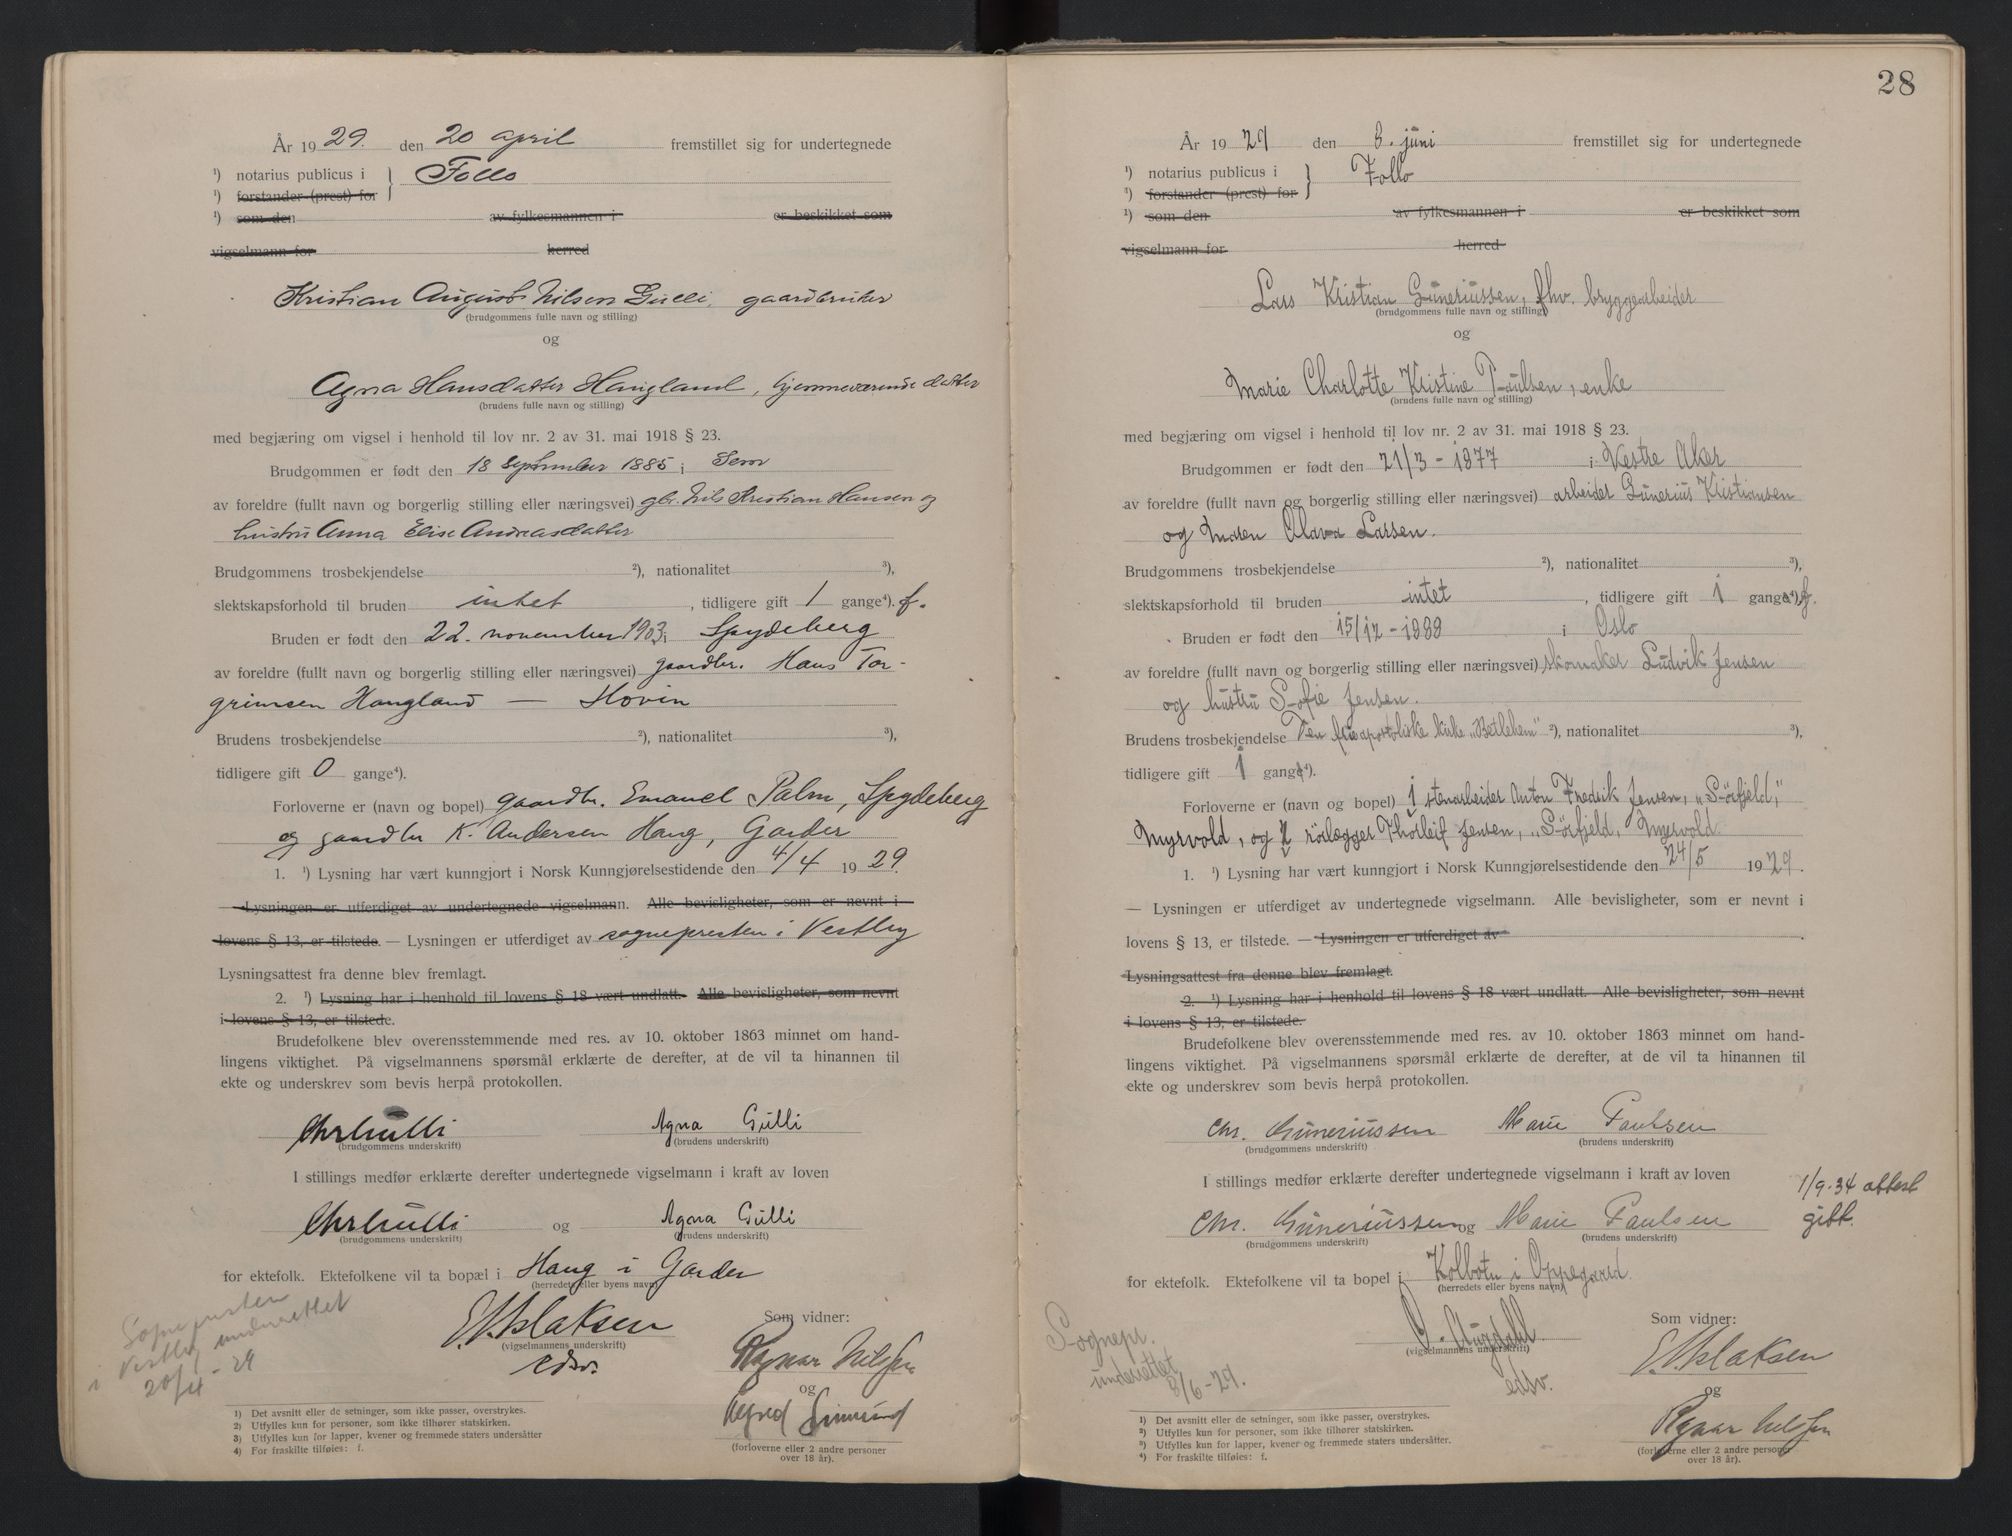 År 1929. den 20 april fremstillet sig for undertegnede
¹) notarius publicus i } Follo
¹) forstander (prest) for
¹) som den av fylkesmannen i er beskikket som
vigselmann for herred
Kristian August Nilsen Gulli, gaardbruker
(brudgommens fulle navn og stilling)
og
Agna Hansdatter Haugland, hjemmeværende datter
(brudens fulle navn og stilling)
med begjæring om vigsel i henhold til lov nr. 2 av 31. mai 1918 § 23.
Brudgommen er født den 18 September 1885 i Sem
av foreldre (fullt navn og borgerlig stilling eller næringsvei) gbr. Nils Kristian Hansen og
hustru Anna Elise Andreasdatter
Brudgommens trosbekjendelse ²), nationalitet ³),
slektskapsforhold til bruden intet, tidligere gift 1 gange⁴). f.
Bruden er født den 22. november 1903 i Spydeberg
av foreldre (fullt navn og borgerlig stilling eller næringsvei) gaardbr. Hans Tor-
grimsen Haugland — Hovin
Brudens trosbekjendelse ²), nationalitet ³),
tidligere gift 0 gange⁴).
Forloverne er (navn og bopel) gaardbr. Emanuel Palm, Spydeberg
og gaardbr K. Andersen Haug, Garder
1. ¹) Lysning har vært kunngjort i Norsk Kunngjørelsestidende den 4/4 1929.
— Lysningen er utferdiget av undertegnede vigselmann. Alle bevisligheter, som er nevnt i
lovens § 13, er tilstede. — Lysningen er utferdiget av sognepresten i Vestby
Lysningsattest fra denne blev fremlagt.
2. ¹) Lysning har i henhold til lovens § 18 vært undlatt. Alle bevisligheter, som nevnt
i lovens § 13, er tilstede.
Brudefolkene blev overensstemmende med res. av 10. oktober 1863 minnet om hand-
lingens viktighet. På vigselmannens spørsmål erklærte de derefter, at de vil ta hinannen til
ekte og underskrev som bevis herpå protokollen.
Chr Gulli Agna Gulli
(brudgommens underskrift) (brudens underskrift)
I stillings medfør erklærte derefter undertegnede vigselmann i kraft av loven
Chr Gulli og Agna Gulli
(brudgommens underskrift) (brudens underskrift)
for ektefolk. Ektefolkene vil ta bopæl i Haug i Garder
(herredets eller byens navn)
Sognepresten
i Vestby underrettet
20/4 - 29
E. Aslaksen
(vigselmannens underskrift)
edsv.
Som vidner:
Ragnar Nilssen
og
Alfred
(forloverne eller 2 andre personer
over 18 år).
1) Det avsnitt eller de setninger, som ikke passer, overstrykes.
2) Utfylles kun for personer, som ikke tilhører statskirken.
3) Utfylles kun for lapper, kvener og fremmede staters undersåtter
4) For fraskilte tilføies: f.
28
År 1929 den 8. juni fremstillet sig for undertegnede
¹) notarius publicus i } Follo
¹) forstander (prest) for
¹) som den av fylkesmannen i er beskikket som
vigselmann for herred
Lars Kristian Guneriussen, fhv. bryggearbeider
(brudgommens fulle navn og stilling)
og
Marie Charlotte Kristine Paulsen, enke
(brudens fulle navn og stilling)
med begjæring om vigsel i henhold til lov nr. 2 av 31. mai 1918 § 23.
Brudgommen er født den 21/3 - 1877 i Vestre Aker
av foreldre (fullt navn og borgerlig stilling eller næringsvei) arbeider Gunerius Kristiansen
og Maren Olava Larsen.
Brudgommens trosbekjendelse ²), nationalitet ³),
slektskapsforhold til bruden intet, tidligere gift 1 gange⁴), f.
Bruden er født den 15/12 - 1888 i Oslo
av foreldre (fullt navn og borgerlig stilling eller næringsvei) skomaker Ludvik Jensen
og hustru Sofie Jensen.
Brudens trosbekjendelse Den frie apostoliske kirke „Betlehem" ²), nationalitet ³),
tidligere gift 1 gang⁴).
Forloverne er (navn og bopel) 1 stenarbeider Anton Fredrik Jensen, „Sörfjeld,"
Myrvold, og 2 rörlægger Thorleif Jensen, „Sörfjeld, Myrvold.
1. ¹) Lysning har vært kunngjort i Norsk Kunngjørelsestidende den 24/5 1929.
— Lysningen er utferdiget av undertegnede vigselmann. Alle bevisligheter, som er nevnt i
lovens § 13, er tilstede. — Lysningen er utferdiget av
Lysningsattest fra denne blev fremlagt.
2. ¹) Lysning har i henhold til lovens § 18 vært undlatt. Alle bevisligheter, som nevnt
i lovens § 13, er tilstede.
Brudefolkene blev overensstemmende med res. av 10. oktober 1863 minnet om hand-
lingens viktighet. På vigselmannens spørsmål erklærte de derefter, at de vil ta hinannen til
ekte og underskrev som bevis herpå protokollen.
Chr. Guneriussen Marie Paulsen
(brudgommens underskrift) (brudens underskrift)
I stillings medfør erklærte derefter undertegnede vigselmann i kraft av loven
1/9-34 attest
gitt.
Chr. Guneriussen og Marie Paulsen
(brudgommens underskrift) (brudens underskrift)
for ektefolk. Ektefolkene vil ta bopel i Kolbotn i Oppegaard.
(herredets eller byens navn)
Sognepr.
underrettet
8/6-29.
O. Augdahl
(vigselmannens underskrift)
edsv.
Som vidner:
E. Aslaksen
og
Ragnar Nilssen
(forloverne eller 2 andre personer
over 18 år).
¹) Det avsnitt eller de setninger, som ikke passer, overstrykes.
²) Utfylles kun for personer, som ikke tilhører statskirken.
³) Utfylles kun for lapper, kvener og fremmede staters undersåtter.
⁴) For fraskilte tilføies: f.